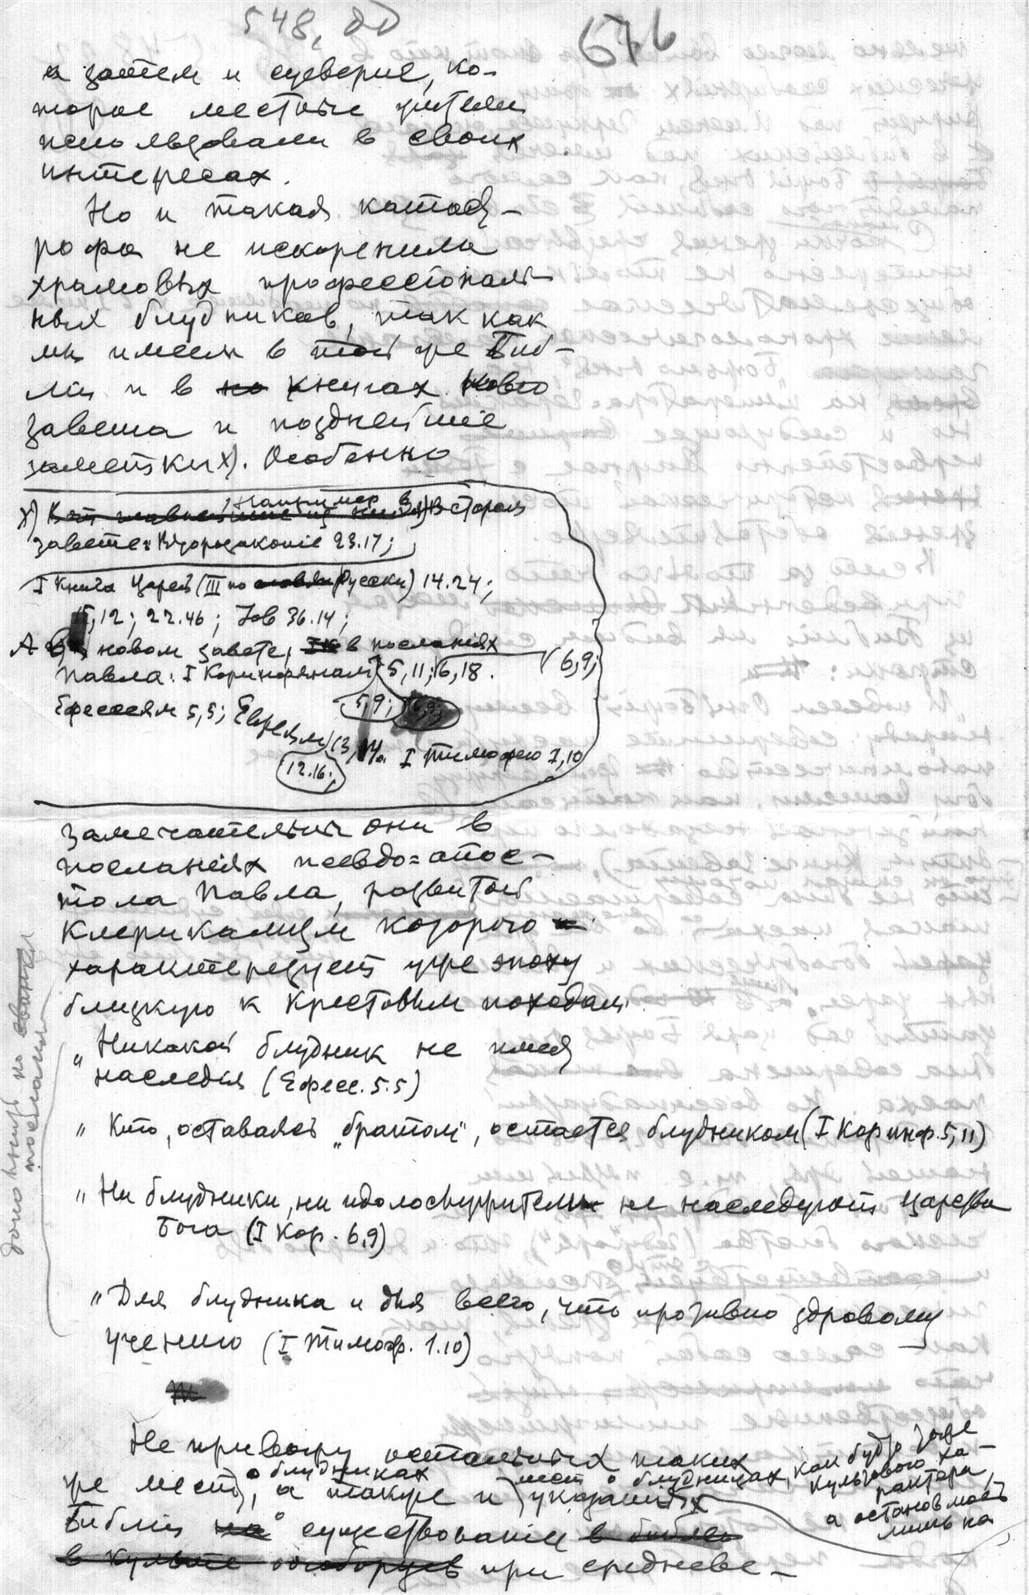 548, об
676
а затем и суеверие, ко-
торое местные учители
использовали в своих
интересах.
Но и такая катаст-
рофа не искоренила
храмовых профессиональ-
ных блудников, так как
мы имеем в той же Биб-
лии и в книгах нового
завета и позднейшие
заметки х). Особенно
х) Например в Старом
завете: Второзаконие 23.17;
I Книга Царей (III по русски) 14.24;
15,12; 22.46; Іов 36.14;
А в новом завете, в посланиях
Павла: I Коринфянам 5, 11; 6,18.
6,9;
5,9; 6,9;
Ефесеям 5,5; Евреям 13,4. I Тимофею 1,10
12.16;
замечательны они в
посланиях псевдо=апос-
тола Павла, развитой
клерикализм которого
характеризует уже эпоху
близкую к Крестовым походам
„Никакой блудник не имея
наследія (Ефес. 5.5)
„ Кто, оставаясь „братом", остается блудником (I Коринф. 5,11)
„ Ни блудники, ни идолослужители не наследуют Царства
Бога (I Кор. 6,9)
„ Для блудника и для всего, что противно здравому
учению (I Тимоф. 1.10)
Не привожу остальных таких
же мест о блудниках, а также и указаний
мест о блудницах, как будто тоже
культового ха-
рактера,
а остановлюсь
лишь на
Библии о существовании
при средневе-